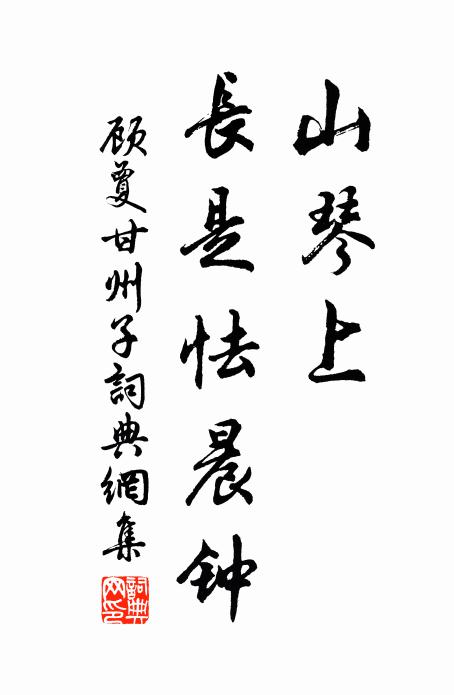 山琴上
長是怯晨钟
顾夐甘州子詞典網集
詞典网印